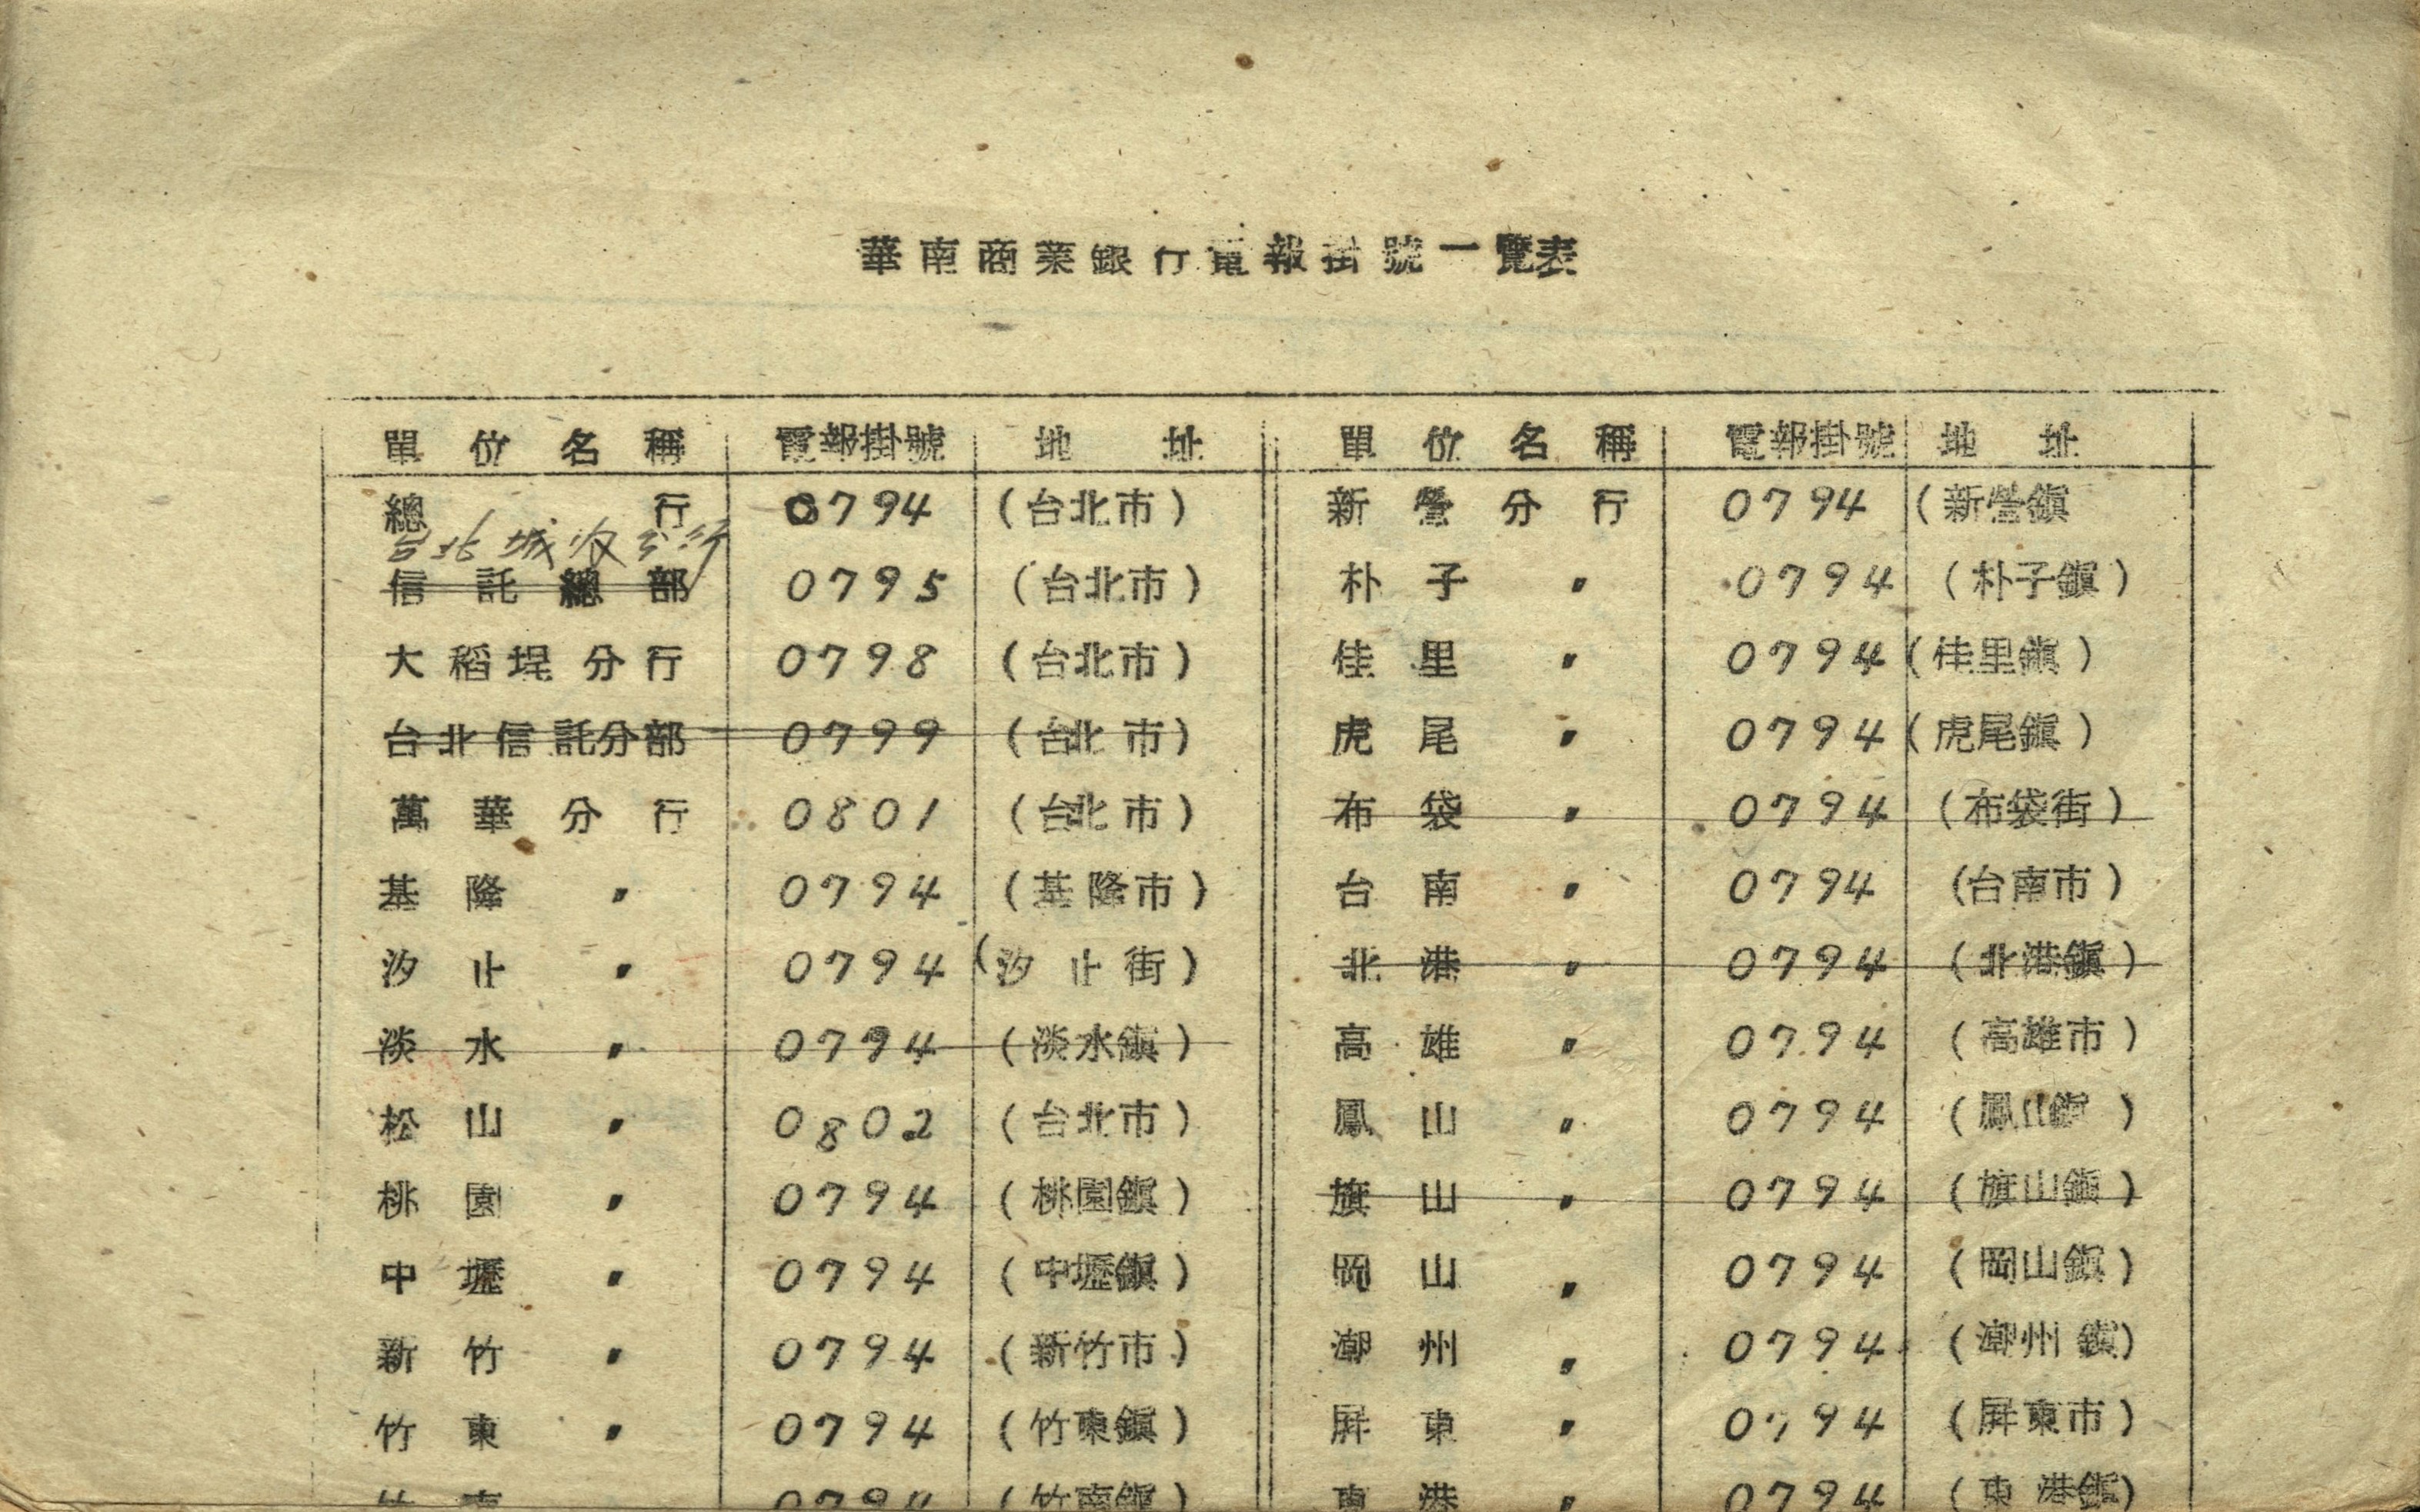 華南商業銀行電報掛號一覽表
單位名稱 電報掛號 地址 單位名稱 電報掛號 地址
總行 0794 (台北市) 新營分行 0794 (新營鎮
台北城內分行
信託總部 0795 (台北市) 朴子〃 0794 (朴子鎮)
大稻埕分行 0798 (台北市) 佳里〃 0794 (佳里鎮)
台北信託分部 0799 (台北市) 虎尾〃 0794 (虎尾鎮)
萬華分行 0801 (台北市) 布袋〃 0794 (布袋街)
基隆〃 0794 (基隆市) 台南〃 0794 (台南市)
汐止〃 0794 (汐止街) 北港〃 0794 (北港鎮)
淡水〃 0794 (淡水鎮) 高雄〃 0794 (高雄市)
松山〃 0802 (台北市) 鳳山〃 0794 (鳳山鎮)
桃園〃 0794 (桃園鎮) 旗山〃 0794 (旗山鎮)
中壢〃 0794 (中壢鎮) 岡山〃 0794 (岡山鎮)
新竹〃 0794 (新竹市) 潮州〃 0794 (潮州鎮)
竹東〃 0794 (竹東鎮) 屏東〃 0794 (屏東市)
竹南 0794 (竹南鎮) 東港〃 0794 (東港鎮)